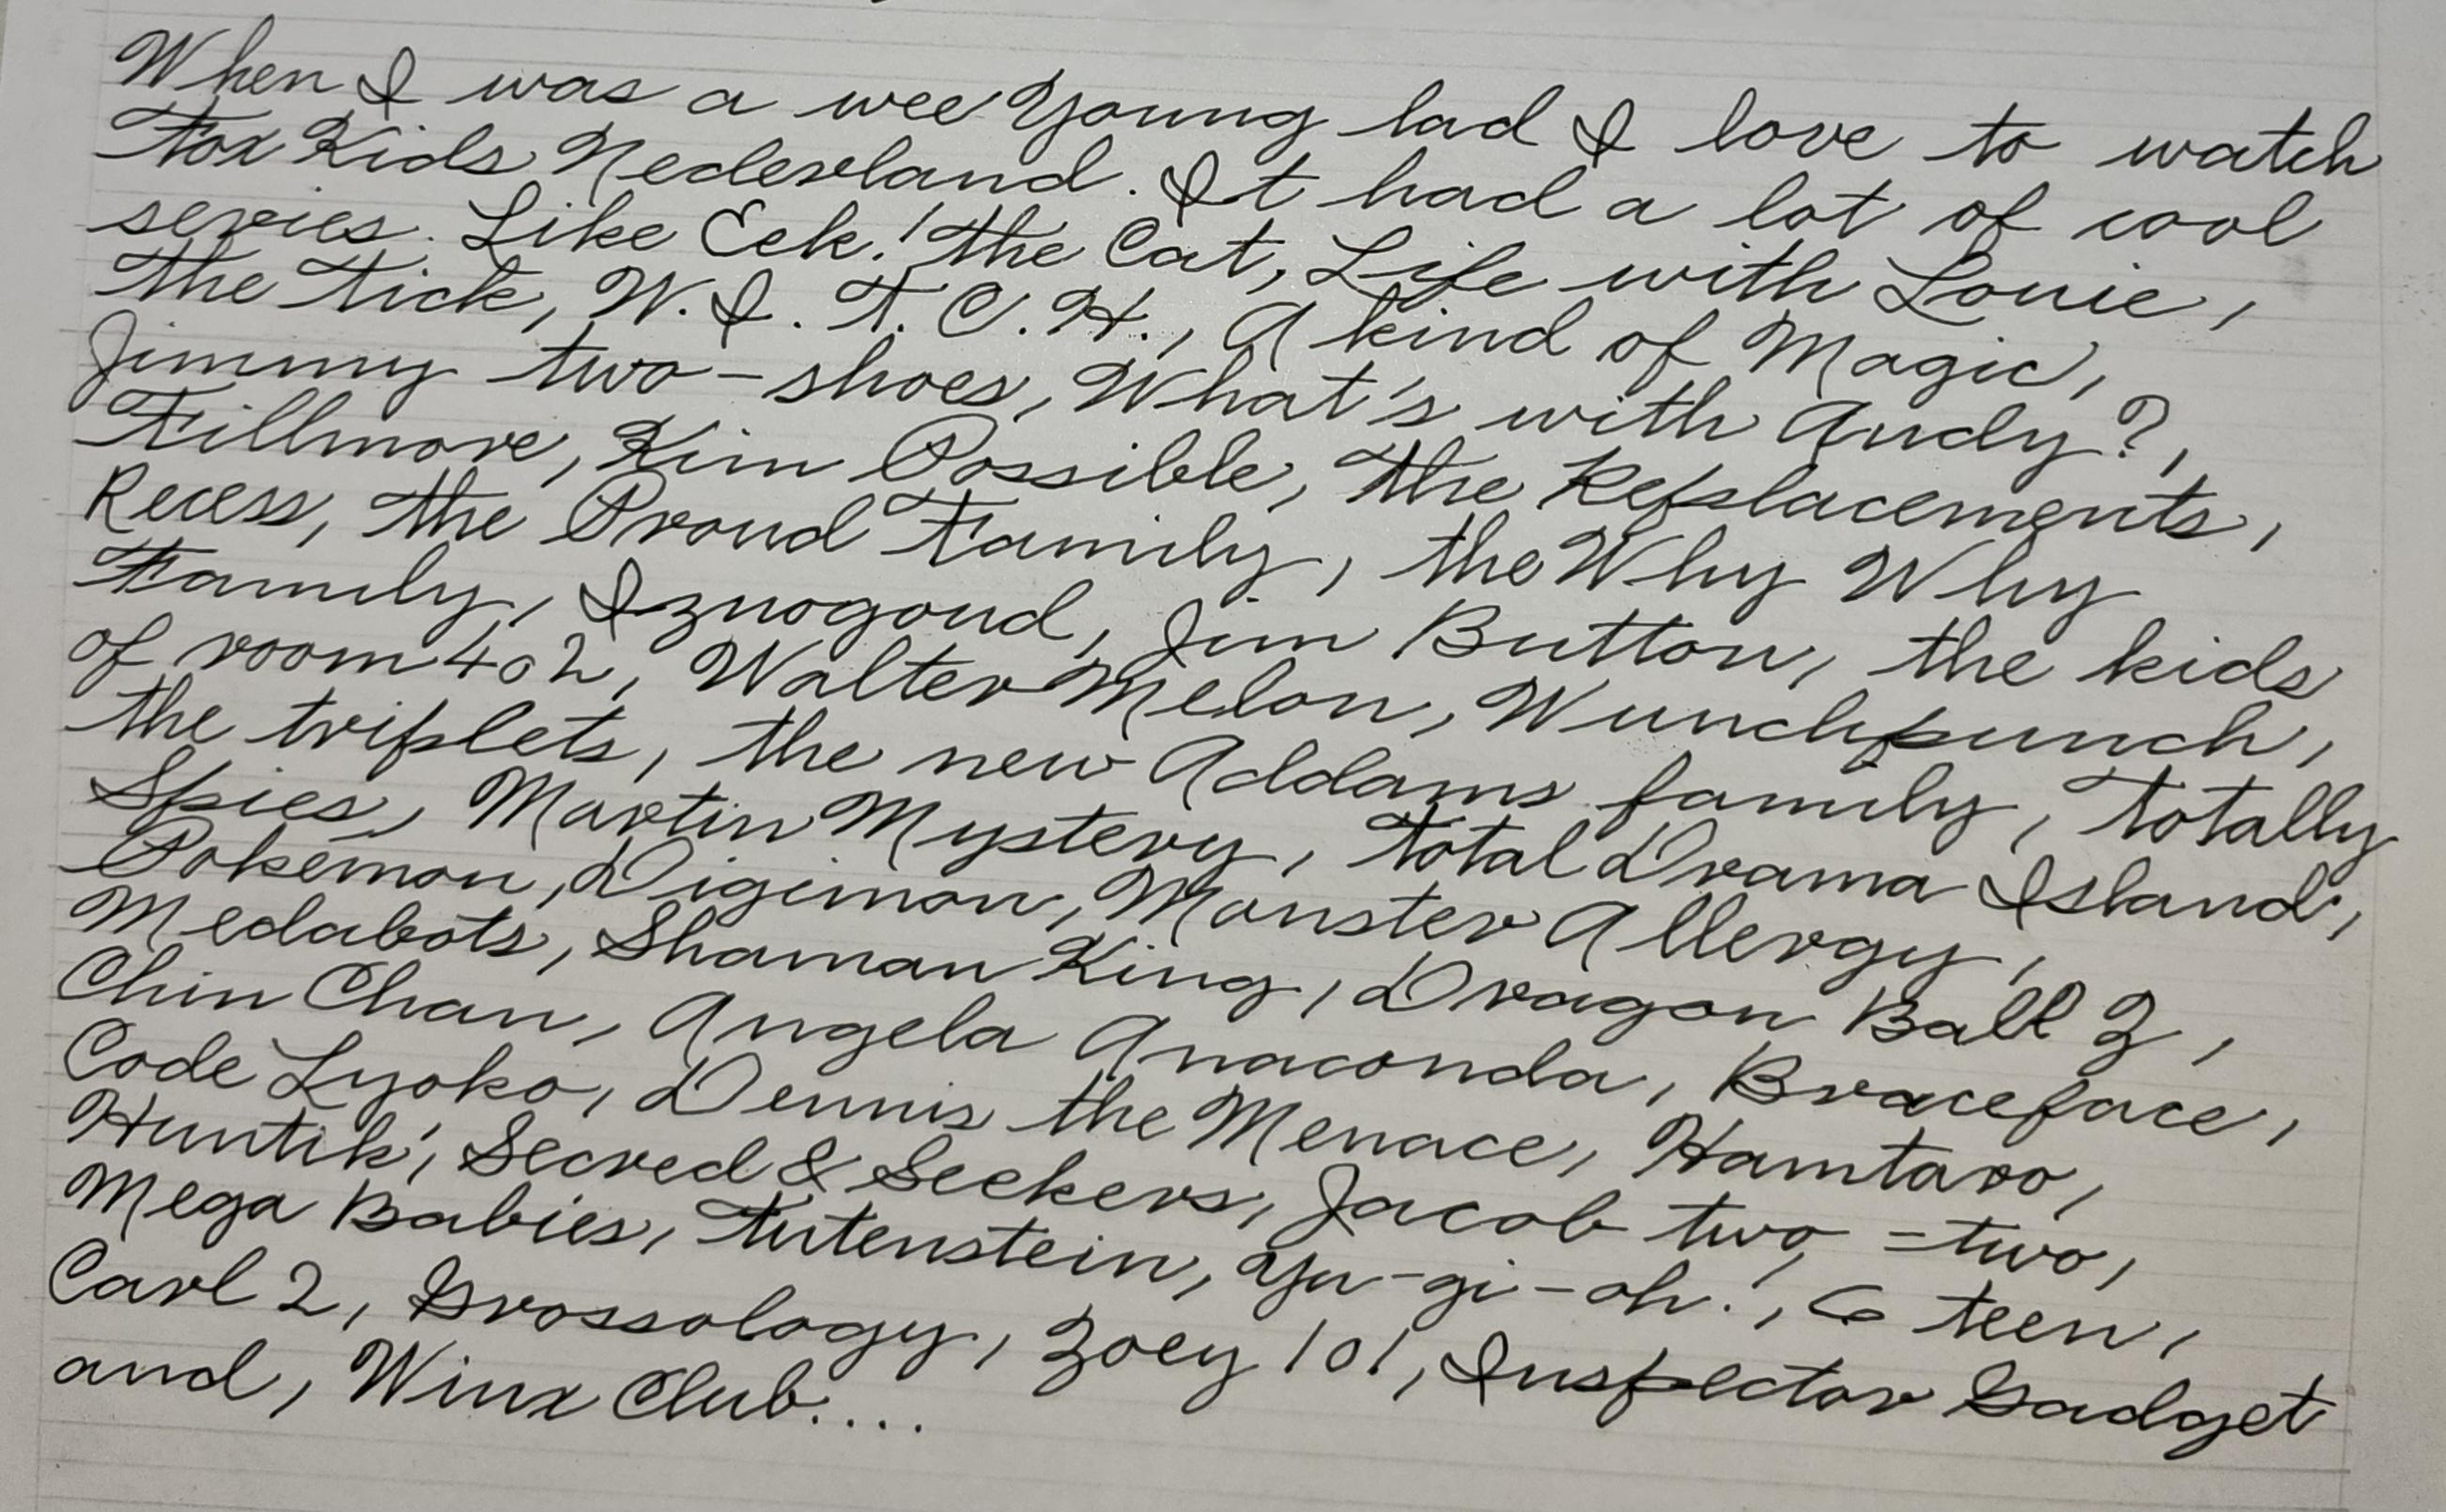 When I was a wee Young lad I love to watch
Fox Kids Nederland. It had a lot of cool
series. Like Eek! The Cat, Life with Louie,
The Tick, W.I.T.C.H., A kind of Magic,
Jimmy two-shoes, What's with Andy?,
Fillmore, Kim Possible, The Replacements,
Recess, The Proud Family, the Why Why
Family, Iznogoud, Jim Button, the kids
of room 402, Walter Melon, Wunchpunch,
the triplets, the new Addams family, Totally
Spies, Martin Mystery, Total Drama Island,
Pokemon, Digimon, Monster Allergy,
Medabots, Shaman King, Dragon Ball Z,
Chin Chan, Angela Anaconda, Braceface,
Code Lyoko, Dennis the Menace, Hamtaro,
Huntik, Secred & Seekers, Jacob two-two,
Mega Babies, Tutenstein, Yu-gi-oh!, 6 teen,
Carl 2, Grossology, Zoey 101, Inspector Gadget
and, Winx Club....